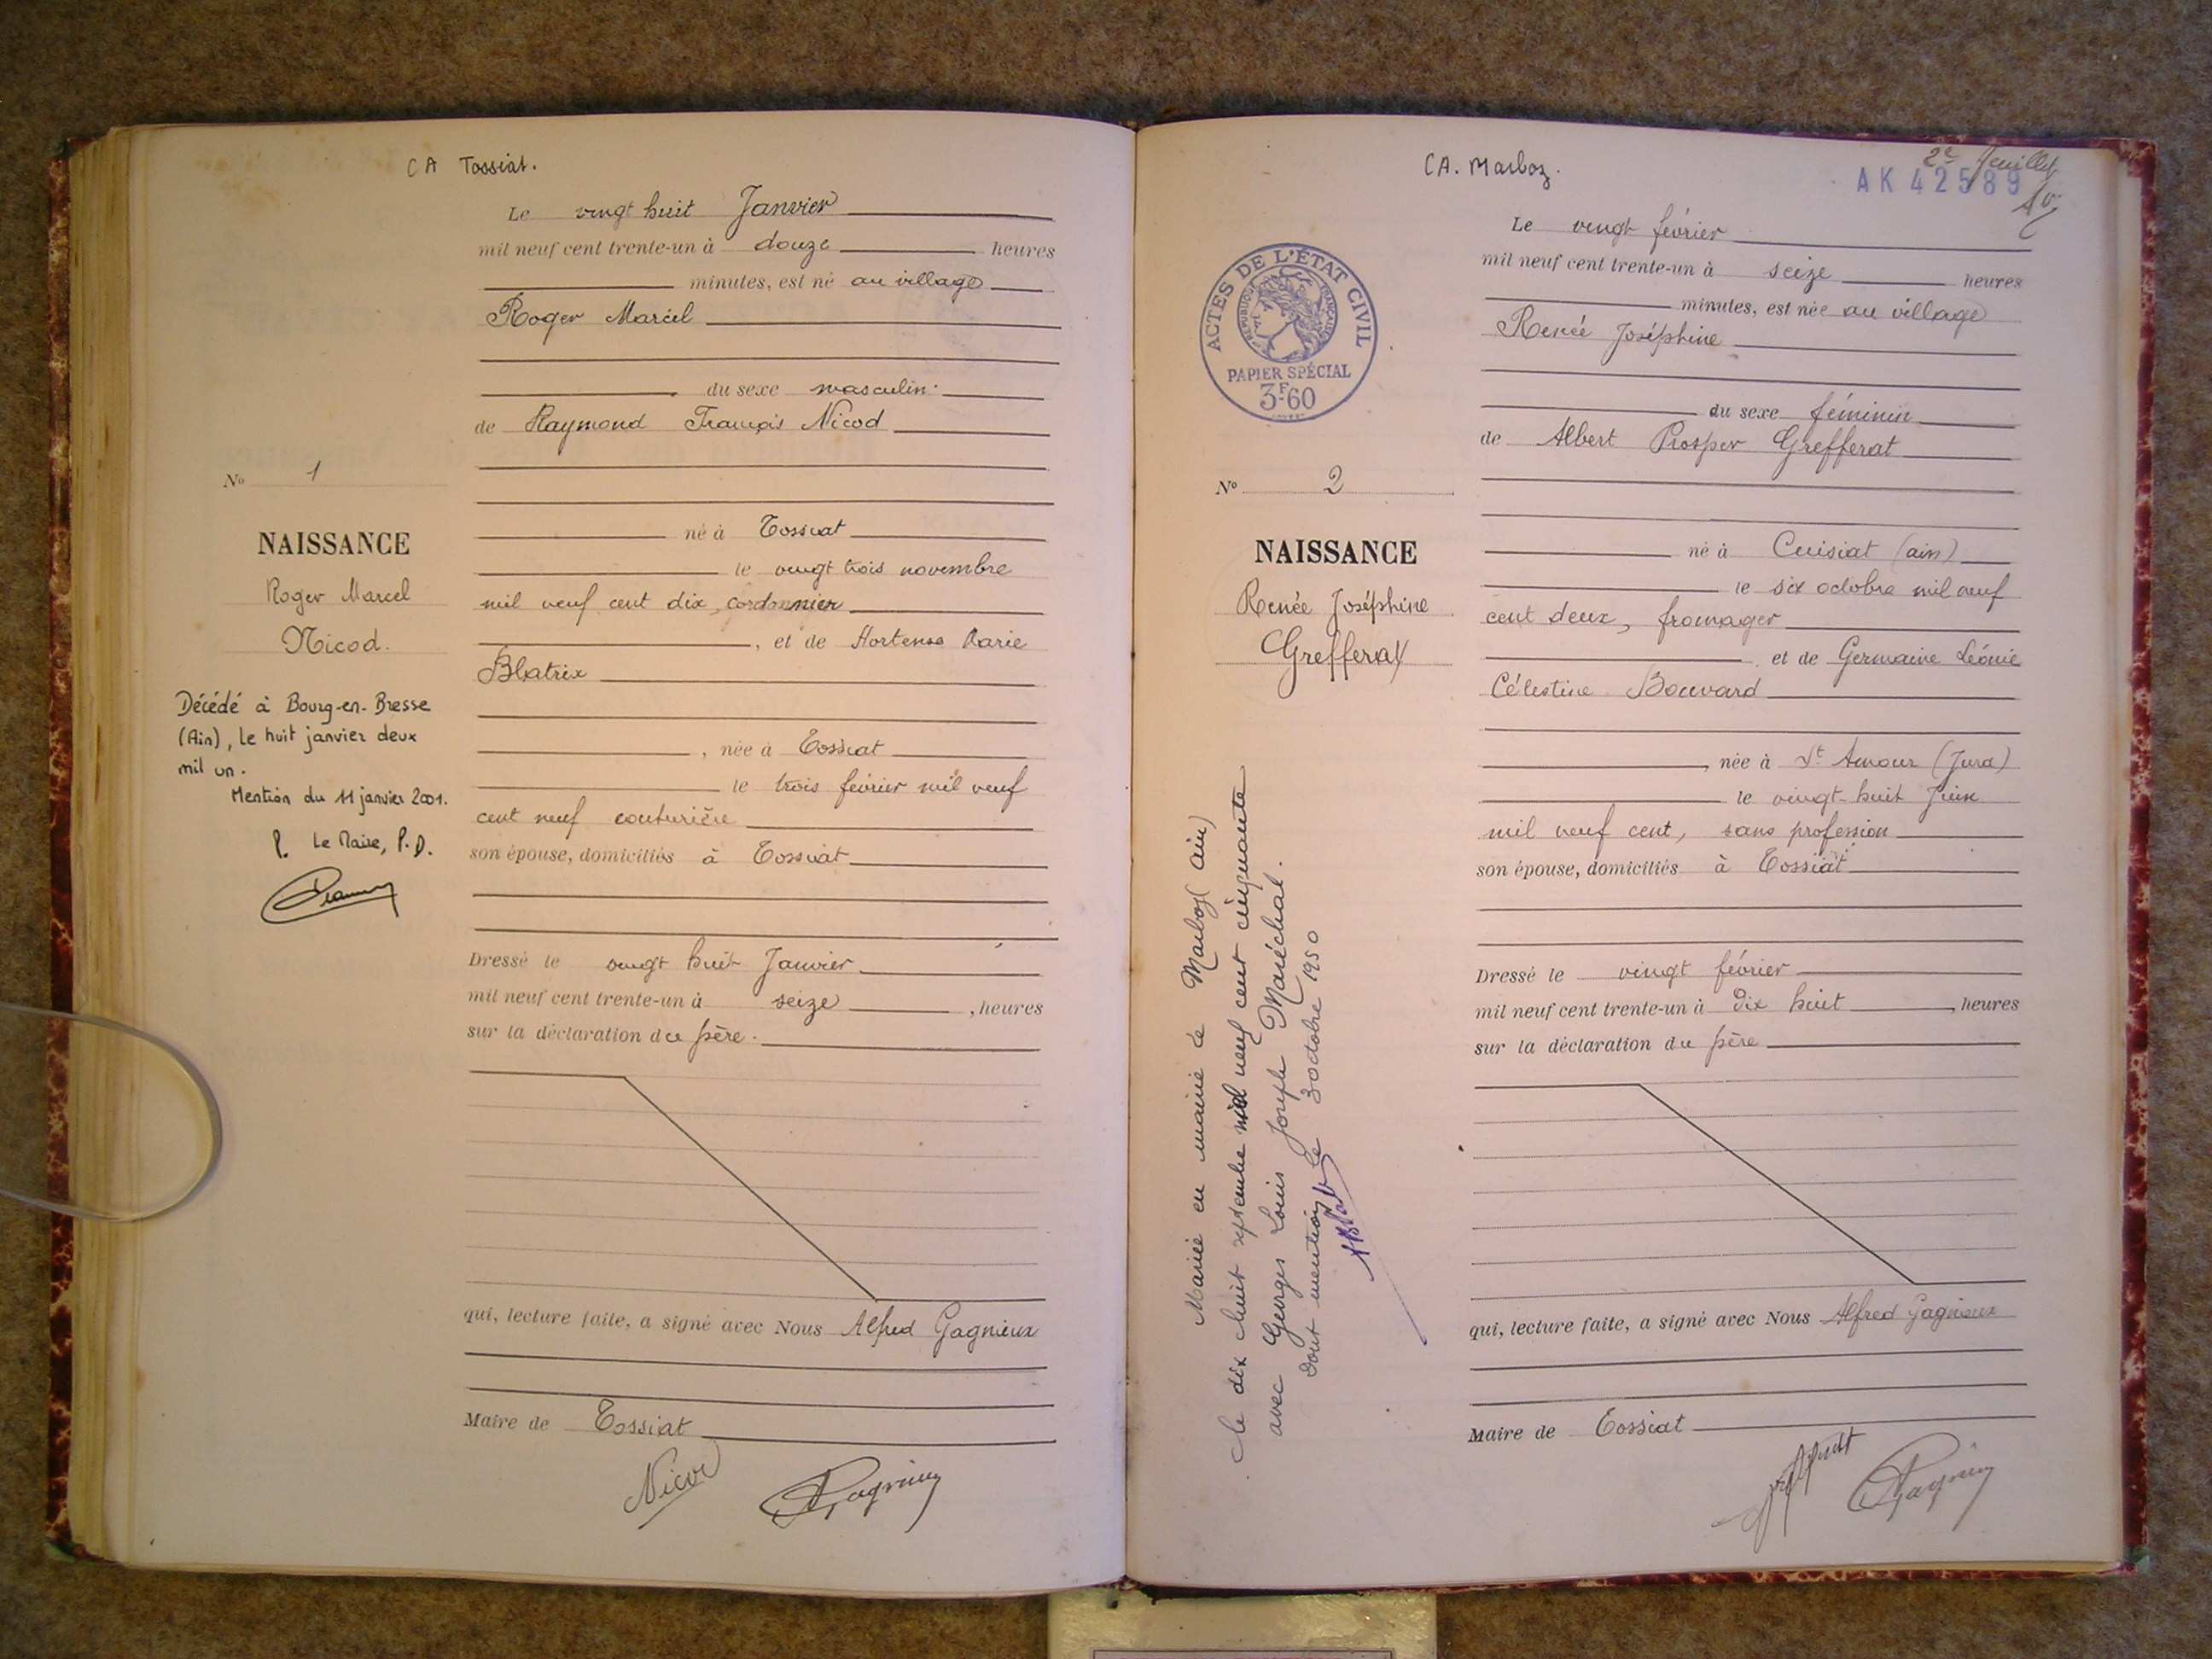 CA Tossiat.
Le vingt huit Janvier
mil neuf cent trente-un à douze heures
minutes, est né au village
Roger Marcel
du sexe masculin
de Raymond François Nicod
No 1
né à Tossiat
NAISSANCE
le vingt trois novembre
Roger Marcel
mil neuf cent dix, cordonnier
Nicod.
, et de Hortense Marie
Blatrix
Décédé à Bourg-en-Bresse
(Ain), le huit janvier deux
mil un.
Mention du 11 janvier 2001.
P. Le Maire, P.D.
, née à Tossiat
le trois février mil neuf
cent neuf couturière
son épouse, domiciliés à Tossiat
Dressé le vingt huit Janvier
mil neuf cent trente-un à seize , heures
sur la déclaration du père.
qui, lecture faite, a signé avec Nous Alfred Gagnieux
Maire de Tossiat
Nicod
Gagnieux
CA. Marboz.
2e feuillet
AK 42589
Le vingt février
mil neuf cent trente-un à seize heures
minutes, est née au village
Renée Joséphine
ACTES DE L'ÉTAT CIVIL
RÉPUBLIQUE FRANÇAISE
PAPIER SPÉCIAL
3F.60
du sexe féminin
de Albert Prosper Grefferat
No 2
né à Cuisiat (ain)
NAISSANCE
le six octobre mil neuf
Renée Joséphine
cent deux, fromager
Grefferat
et de Germaine Léonie
Célestine Bouvard
, née à St Amour (Jura)
le vingt-huit Juin
mil neuf cent, sans profession
son épouse, domiciliés à Tossiat
Dressé le vingt février
mil neuf cent trente-un à dix huit , heures
sur la déclaration du père
qui, lecture faite, a signé avec Nous Alfred Gagnieux
Maire de Tossiat
Gagnieux
Mariée en mairie de Marboz (ain)
le dix huit septembre mil neuf cent cinquante
avec Georges Louis Joseph Maréchal.
Dont mention le 30 octobre 1950